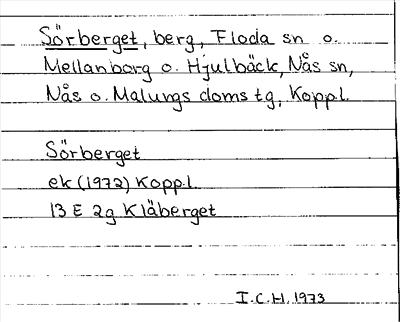 Sörberget, berg, Floda sn o.
Mellanborg o. Hjulbäck, Nås sn,
Nås o. Malungs doms tg, Koppl.
Sörberget
ek (1972) Koppl.
13 E 2g Kläberget
I.C.H. 1973